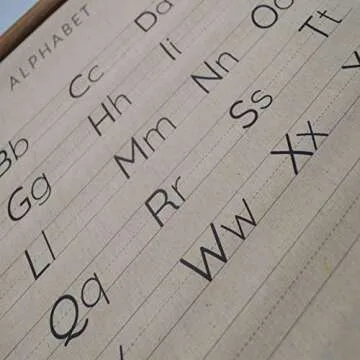 ALPHABET
Bb Cc Dd
Gg Hh Ii
Ll Mm Nn Oo
Qq Rr Ss Tt
Ww Xx